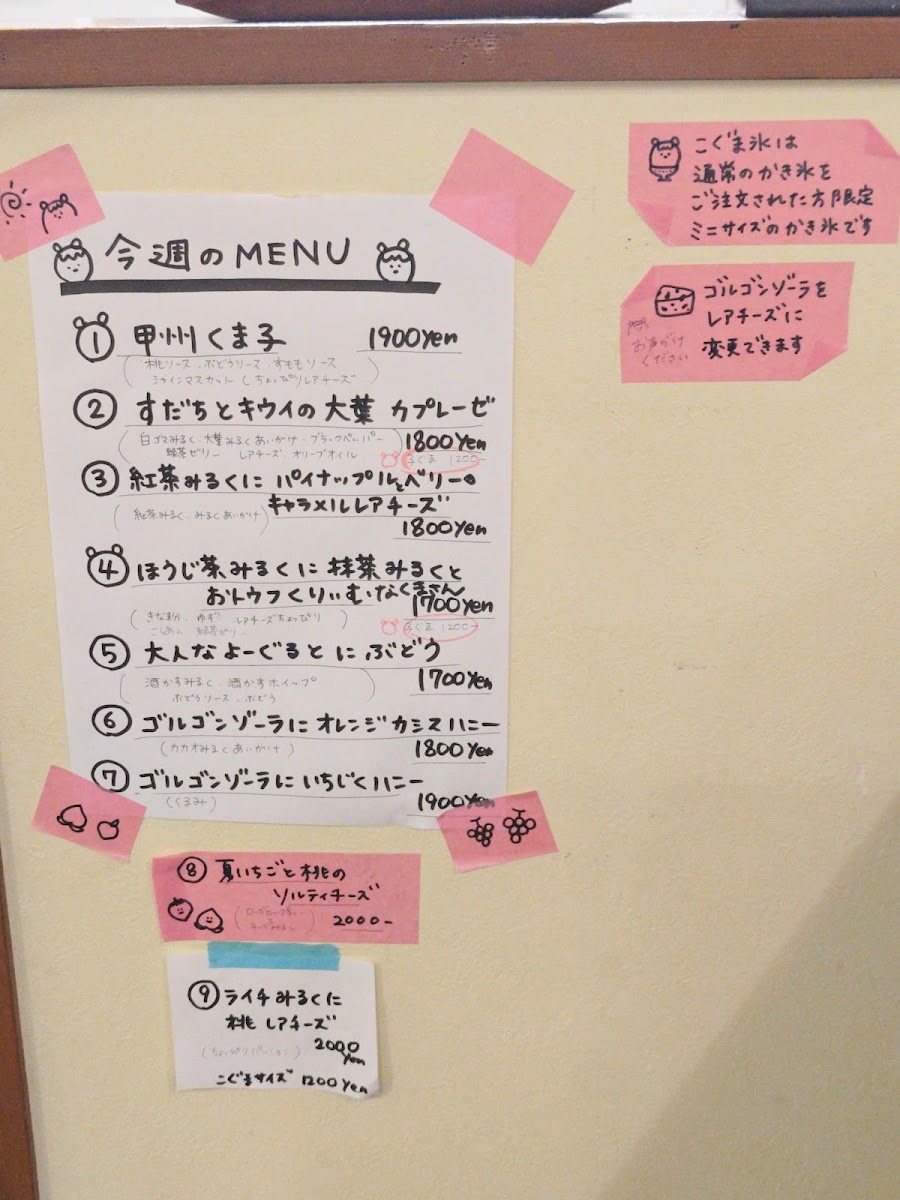 今週のMENU
① 甲州くま子 1900yen
(桃ソース、ぶどうソース、すももソース
シャインマスカット、ちょっぴりレアチーズ)
② すだちとキウイの大葉カプレーゼ
(白ゴマみるく、大葉みるくあいがけ、ブラックペッパー 1800yen
緑茶ゼリー レアチーズ、オリーブオイル)
子ぐま 1200-
③ 紅茶みるくに パイナップルとベリーの
キャラメルレアチーズ
(紅茶みるく、みるくあいがけ)
1800yen
④ ほうじ茶みるくに 抹茶みるくと
おトウフくりぃむなくまさん
1700yen
(きな粉、ゆず レアチーズちょっぴり
こしあん 緑茶ゼリー)
子ぐま 1200-
⑤ 大人なよーぐるとにぶどう
1700yen
(酒かすみるく、酒かすホイップ
ぶどうソース、ぶどう)
⑥ ゴルゴンゾーラにオレンジカシスハニー
(カカオみるくあいがけ) 1800yen
⑦ ゴルゴンゾーラにいちじくハニー
(くるみ) 1900yen
⑧ 夏いちごと桃の
ソルティチーズ
2000-
⑨ ライチみるくに
桃レアチーズ
(ちょっぴりパッション) 2000yen
こぐまサイズ 1200yen
こぐま氷は
通常のかき氷を
ご注文された方限定
ミニサイズのかき氷です
ゴルゴンゾーラを
レアチーズに
変更できます
お声がけ
ください